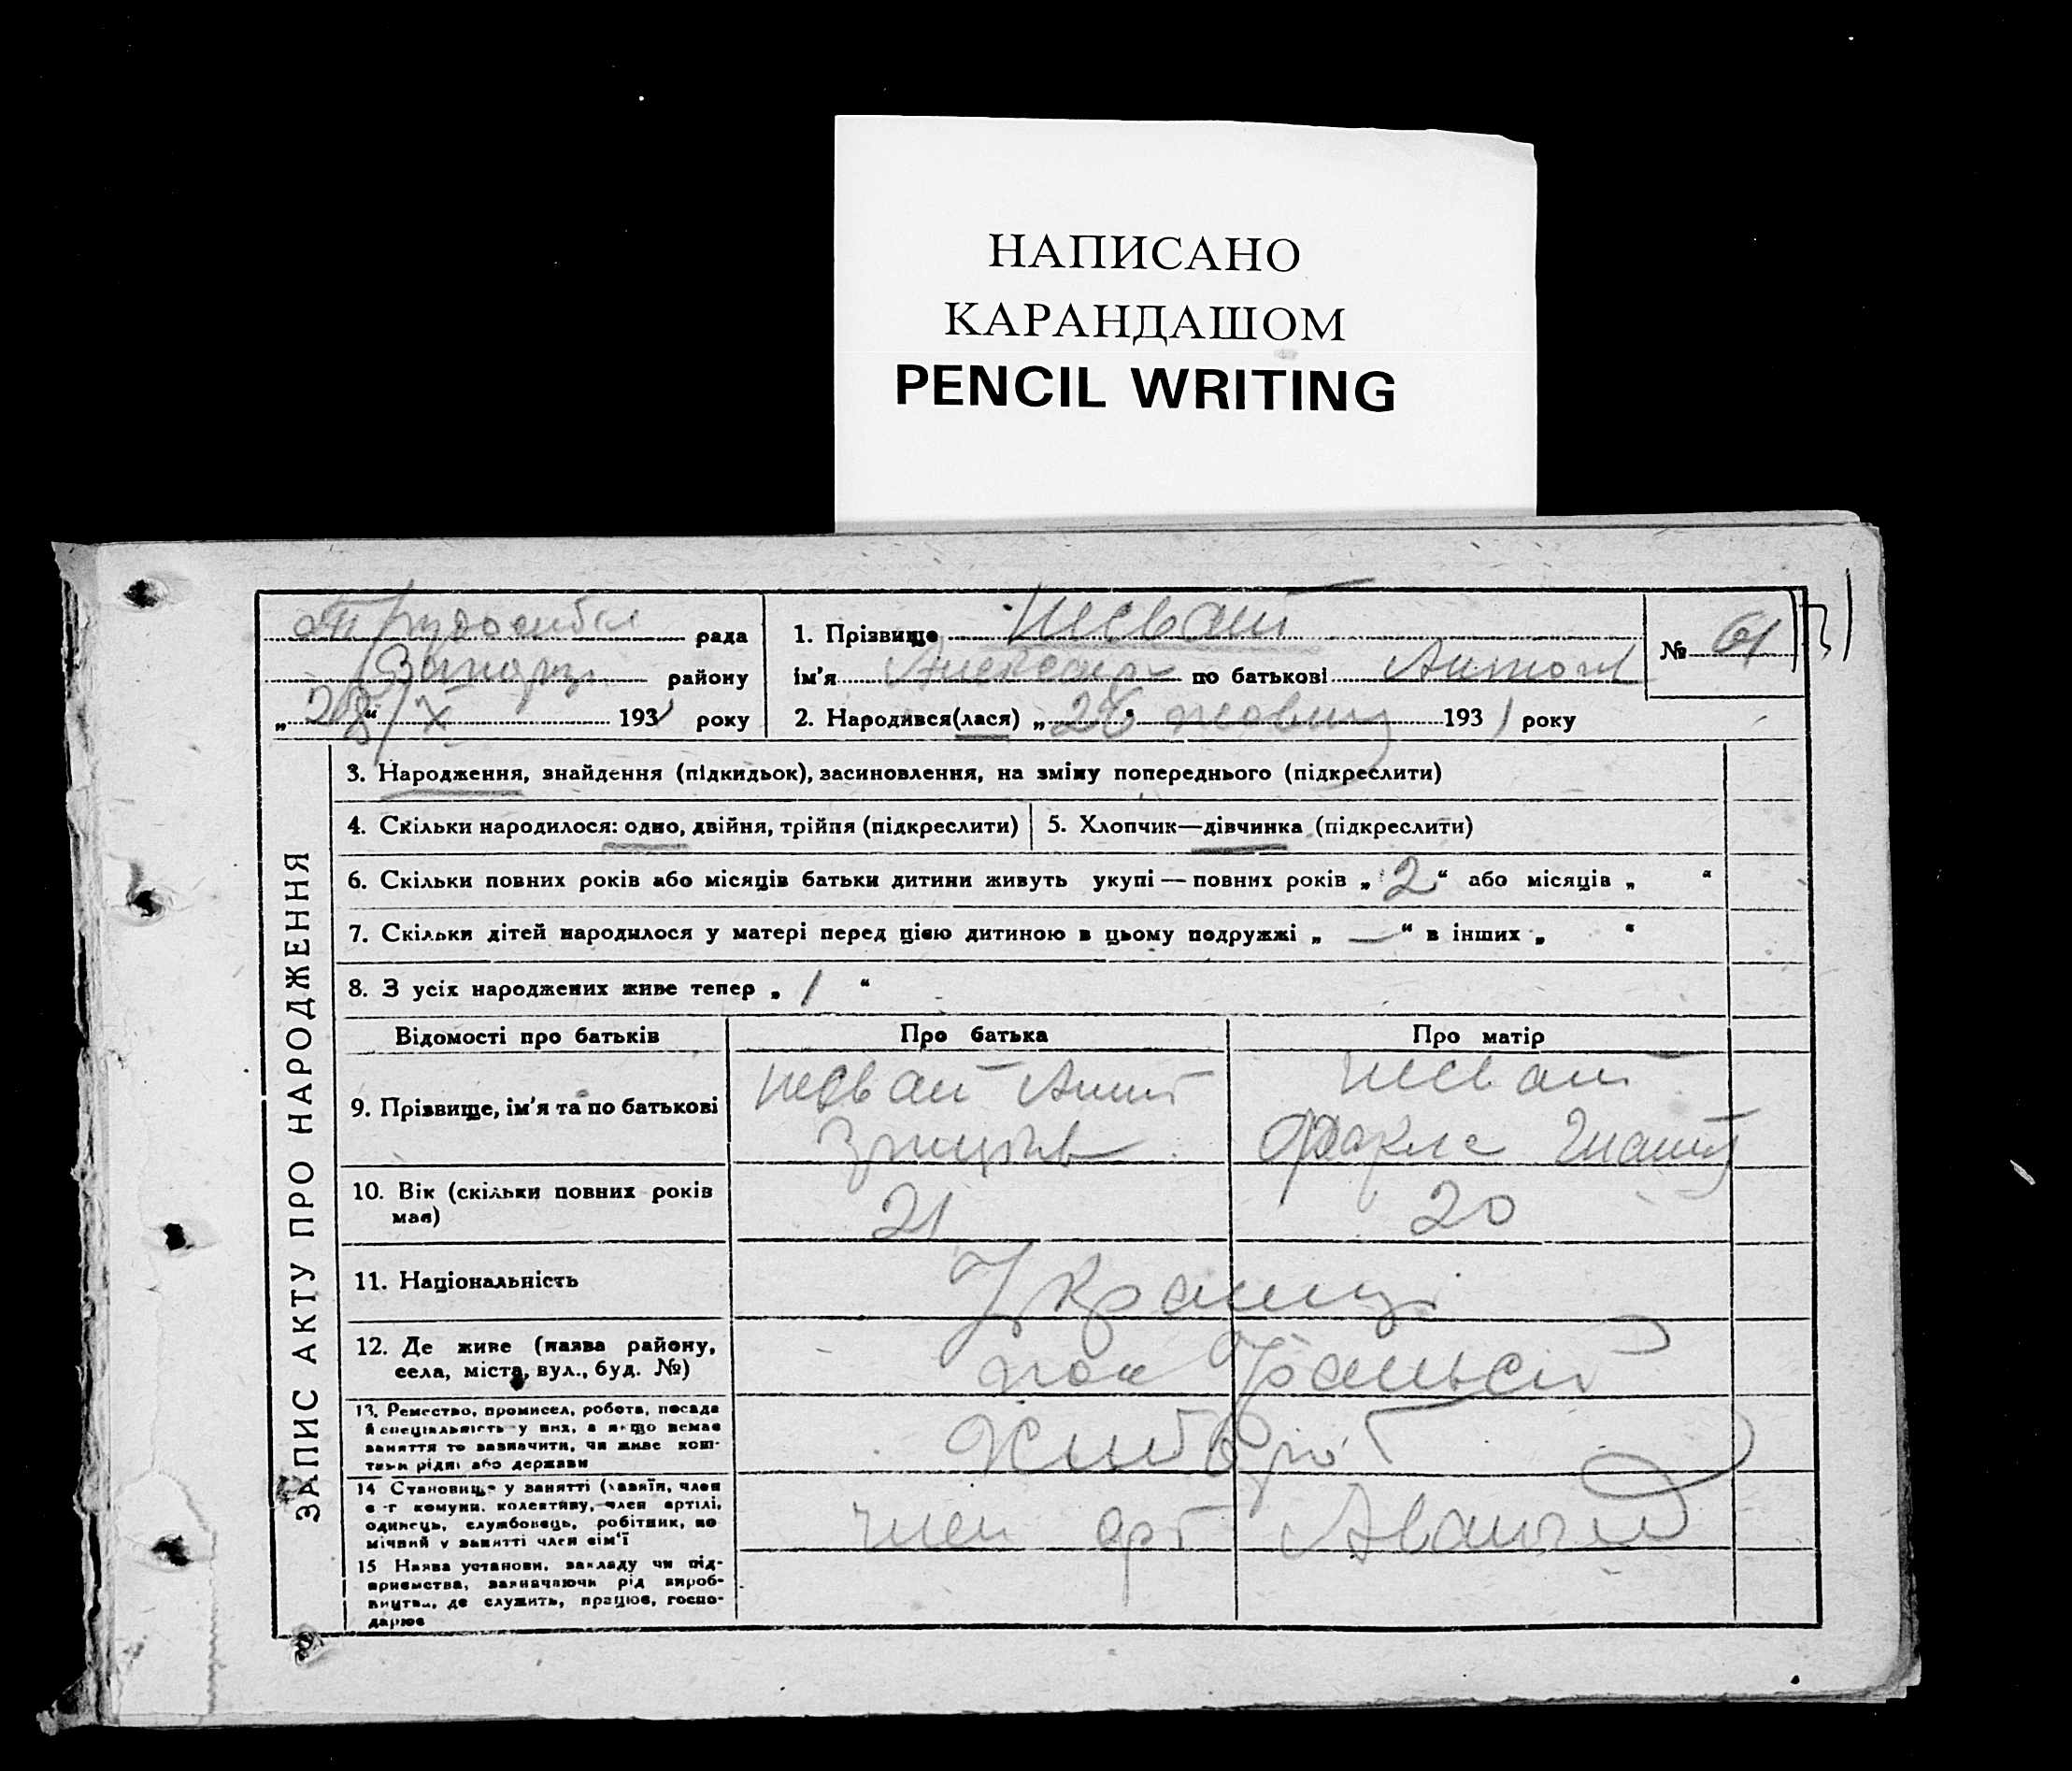 НАПИСАНО
КАРАНДАШОМ
PENCIL WRITING
рада
району
„28“/X 1931 року
1. Прізвище Несват
ім'я по батькові Антон
№ 61
2. Народився(лася) „28“ 1931 року
ЗАПИС АКТУ ПРО НАРОДЖЕННЯ
3. Народження, знайдення (підкидьок), засиновлення, на зміну попереднього (підкреслити)
4. Скільки народилося: одно, двійня, трійня (підкреслити)
5. Хлопчик—дівчинка (підкреслити)
6. Скільки повних років або місяців батьки дитини живуть укупі — повних років „2“ або місяців „ “
7. Скільки дітей народилося у матері перед цією дитиною в цьому подружжі „—“ в інших „ “
8. З усіх народжених живе тепер „1“
Відомості про батьків Про батька Про матір
9. Прізвище, ім'я та по батькові
Несват Антит
Несват
10. Вік (скільки повних років має)
21 20
11. Національність
Українці
12. Де живе (назва району,
села, міста, вул., буд. №)
13. Ремество, промисел, робота, посада
й спеціальність у них, а якщо немає
заняття то зазначити, чи живе кош-
тами рідні або держави
14 Становище у занятті (хазяїн, член
с-г комуни, колективу, член артілі,
одинець, службовець, робітник, по
мічний у занятті член сім'ї
член арт
15 Назва установи, закладу чи під-
приємства, зазначаючи рід вироб-
ництва, де служить, працює, госпо-
дарює